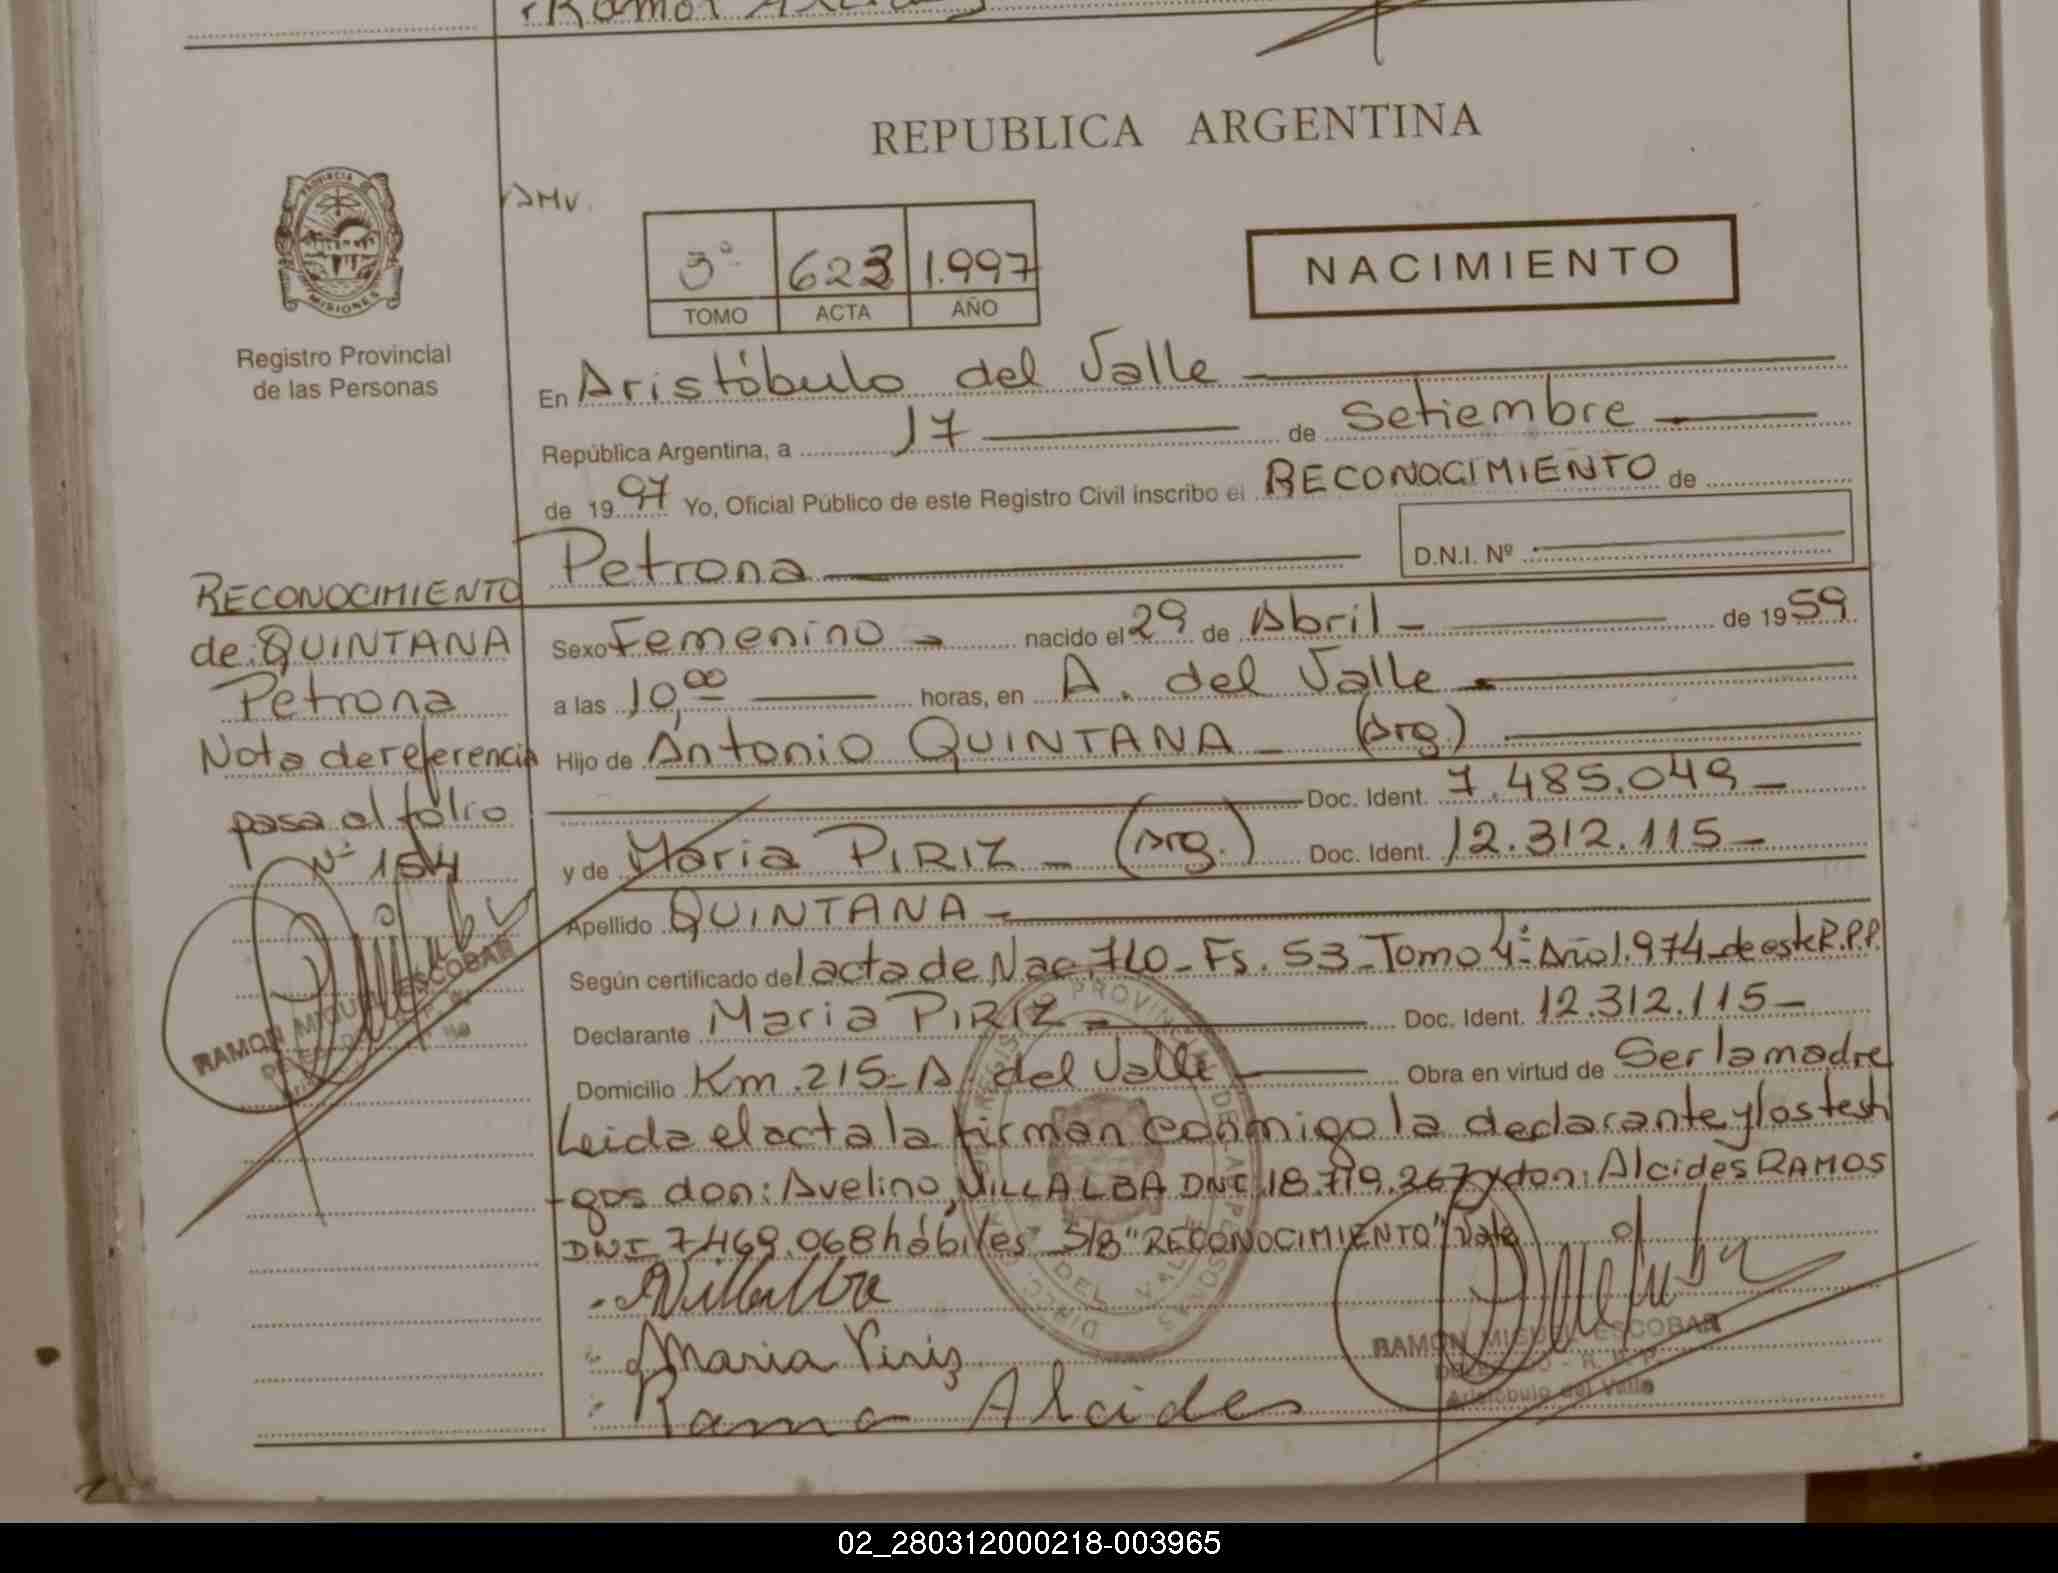 Ramos Alcides
REPUBLICA ARGENTINA
PROVINCIA DE
MISIONES
Registro Provincial
de las Personas
AMV.
3º 623 1.997
TOMO ACTA AÑO
NACIMIENTO
En Aristóbulo del Valle
República Argentina, a 17 de Setiembre
de 1997 Yo, Oficial Público de este Registro Civil inscribo el RECONOCIMIENTO de
Petrona D.N.I. Nº
RECONOCIMIENTO
de QUINTANA
Petrona
Nota de referencia
pasa al folio
Nº 154
RAMON MIGUEL ESCOBAR
Sexo Femenino nacido el 29 de Abril de 1959
a las 10,00 horas, en A. del Valle
Hijo de Antonio QUINTANA (Arg.)
Doc. Ident. 7.485.049
y de Maria PIRIZ (Arg.) Doc. Ident. 12.312.115
Apellido QUINTANA
Según certificado del acta de Nac. 710 - Fs. 53 - Tomo 4º - Año 1.974 - de este R.P.P.
Declarante Maria PIRIZ Doc. Ident. 12.312.115
Domicilio Km. 215 - A. del Valle Obra en virtud de Ser la madre
Leida el acta la firman conmigo la declarante y los testi
-gos don: Avelino, VILLALBA DNI 18.719.267 y don: Alcides RAMOS
DNI 7.469.068 hábiles S/B "RECONOCIMIENTO" Vale
AVillalba
Maria Piriz
Ramo Alcides
RAMON MIGUEL ESCOBAR
DELEGADO - R. P. P.
Aristóbulo del Valle
02_280312000218-003965